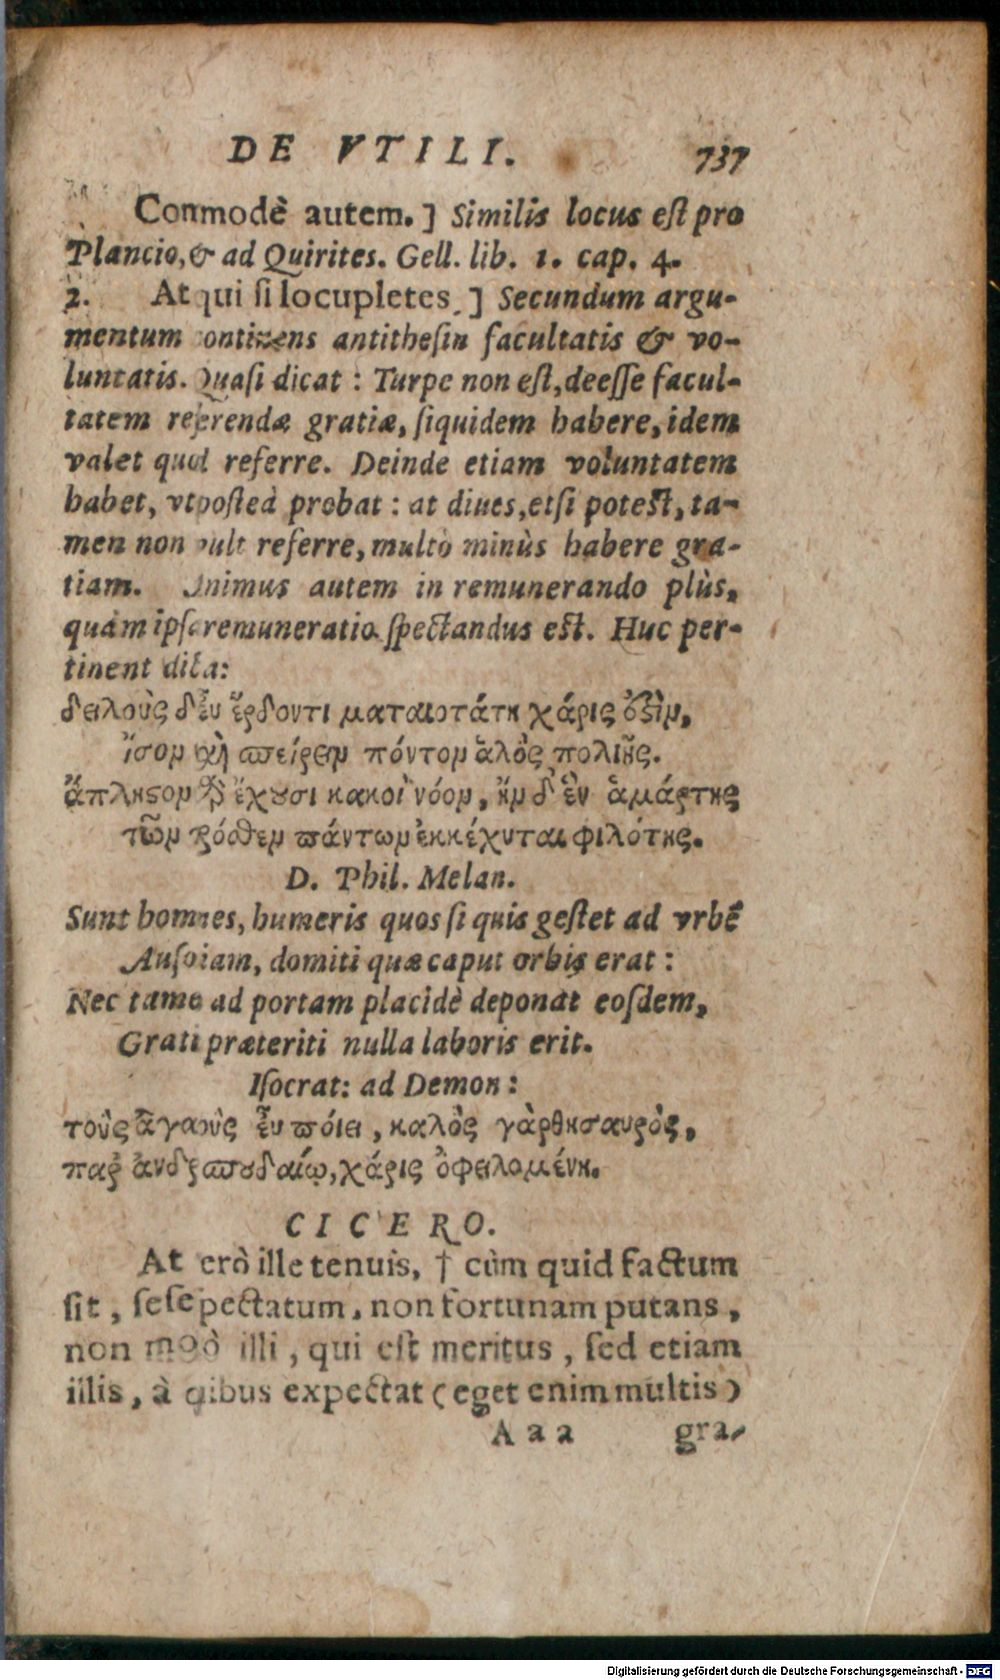 DE VTILI. 737
Commodè autem.] Similis locus est pro
Plancio, & ad Quirites. Gell. lib. 1. cap. 4.
2. Atqui si locupletes.] Secundum argu-
mentum continens antithesin facultatis & vo-
luntatis. Quasi dicat: Turpe non est, deesse facul-
tatem referendæ gratiæ, siquidem habere, idem
valet quod referre. Deinde etiam voluntatem
habet, vt posteà probat: at diues, etsi potest, ta-
men non vult referre, multò minùs habere gra-
tiam. Animus autem in remunerando plùs,
quàm ipsa remuneratio spectandus est. Huc per-
tinent dicta:
δειλοὺς δ' εὖ ἔρδοντι ματαιοτάτη χάρις ὀξὶν,
ἴσον καὶ σπείρειν πόντον ἁλὸς πολιῆς.
ἄπληστον γὰρ ἔχουσι κακοὶ νόον, ἢν δ' ἓν ἁμάρτης
τῶν πρόσθεν πάντων ἐκκέχυται φιλότης.
D. Phil. Melan.
Sunt homines, humeris quos si quis gestet ad vrbē
Ausoniam, domiti quæ caput orbis erat:
Nec tamen ad portam placidè deponat eosdem,
Grati præteriti nulla laboris erit.
Isocrat: ad Demon:
τοὺς ἀγαθοὺς εὖ ποίει, καλὸς γὰρ θησαυρὸς,
παρ' ἀνδρὶ σπουδαίῳ, χάρις ὀφειλομένη.
CICERO.
At verò ille tenuis, † cùm quid factum
sit, se spectatum, non fortunam putans,
non modò illi, qui est meritus, sed etiam
illis, à quibus expectat (eget enim multis)
Aaa gra-
Digitalisierung gefördert durch die Deutsche Forschungsgemeinschaft - DFG